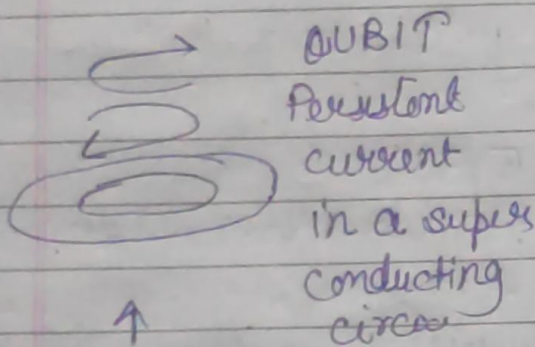 QUBIT
Persistent
current
in a super
conducting